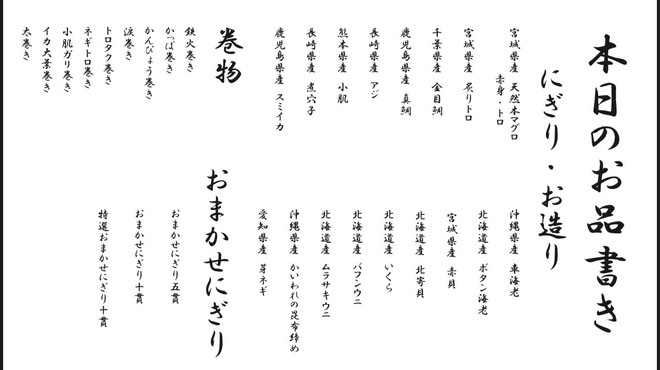 本日のお品書き
にぎり・お造り
宮城県産 天然本マグロ
赤身・トロ
宮城県産 炙りトロ
千葉県産 金目鯛
鹿児島県産 真鯛
長崎県産 アジ
熊本県産 小肌
長崎県産 煮穴子
鹿児島県産 スミイカ
沖縄県産 車海老
北海道産 ボタン海老
宮城県産 赤貝
北海道産 北寄貝
北海道産 いくら
北海道産 バフンウニ
北海道産 ムラサキウニ
沖縄県産 かいわれの昆布締め
愛知県産 芽ネギ
巻物
鉄火巻き
かっぱ巻き
かんぴょう巻き
涙巻き
トロタク巻き
ネギトロ巻き
小肌ガリ巻き
イカ大葉巻き
太巻き
おまかせにぎり
おまかせにぎり五貫
おまかせにぎり十貫
特選おまかせにぎり十貫